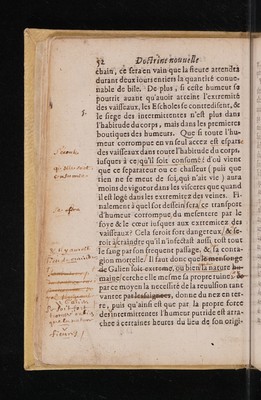 52 Doctrine nouuelle
chain, ce sera en vain que la fieure attendra
durant deux iours entiers la quantité conue-
nable de bile. De plus, si ceste humeur se
pourrit auant qu'auoir atteint l'extremité
des vaisseaux, les Escholes se contredisent, &
le siege des intermittentes n'est plus dans
l'habitude du corps, mais dans les premieres
boutiques des humeurs. Que si toute l'hu-
meur corrompue en vn seul accez est espars
des vaisseaux dans toute l'habitude du corps,
iusques à ce qu'il soit consumé? d'où vient
que ce separateur ou ce chasseur (puis que
rien ne se meut de soi, qui n'ait vie) aura
moins de vigueur dans les visceres que quand
il est logé dans les extremitez des veines. Fi-
nalement à quelle fin se feroit ce transport
d'humeur corrompue, du mesentere par le
foye & le cœur iusques aux extremitez des
vaisseaux? Cela seroit fort dangereux, & se-
roit à craindre qu'il n'infectast aussi tost tout
le sang par son frequent passage, & sa conta-
gion mortelle. Il faut donc que le mensonge
de Galien soit extreme, ou bien la nature hu-
maine cerche elle mesme sa propre ruine,
par ce moyen la necessité de la reuulsion tant
vantee par les saignees, donne du nez en ter-
re, puis qu'ainsi est que par la propre force
des intermittentes l'humeur putride est arra-
chee à certaines heures du lieu de son origi-